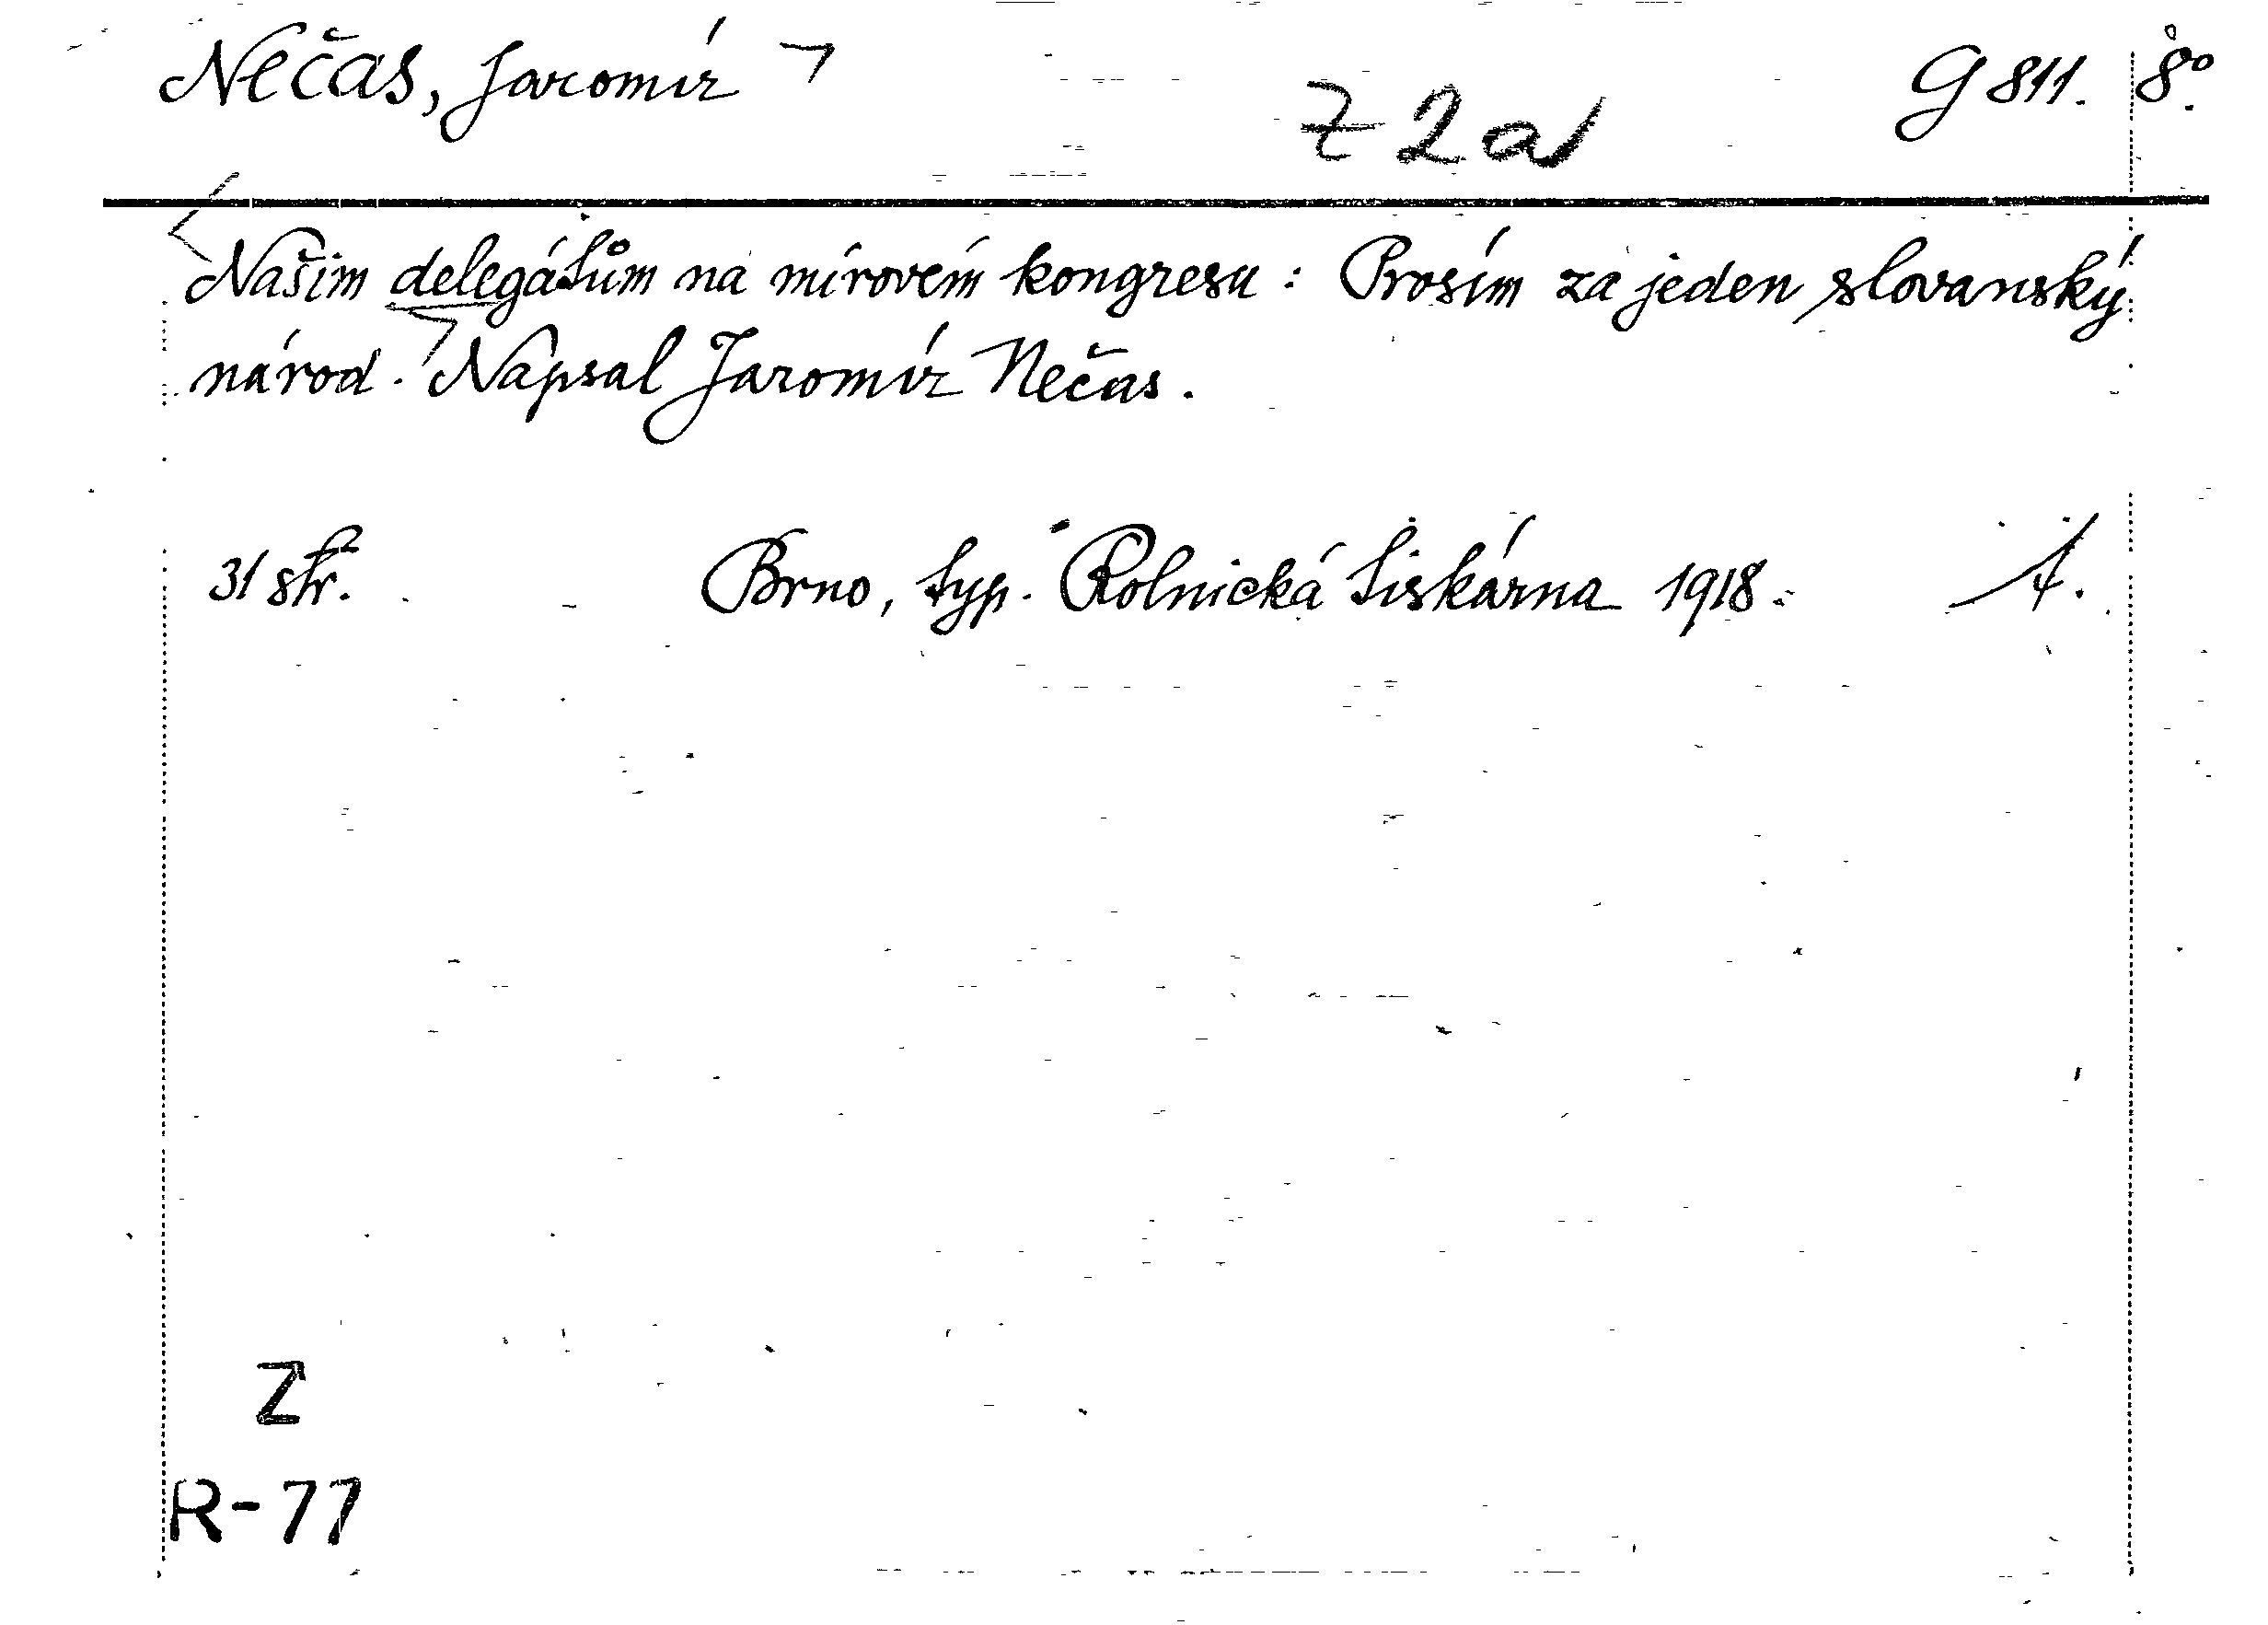 Nečas, Jaromír
Z 2 a
G 811. 8°.
Našim delegátům na mírovém kongresu: Prosím za jeden slovanský
národ. Napsal Jaromír Nečas.
31 str. Brno, typ. Rolnická tiskárna 1918.
Z
R-77